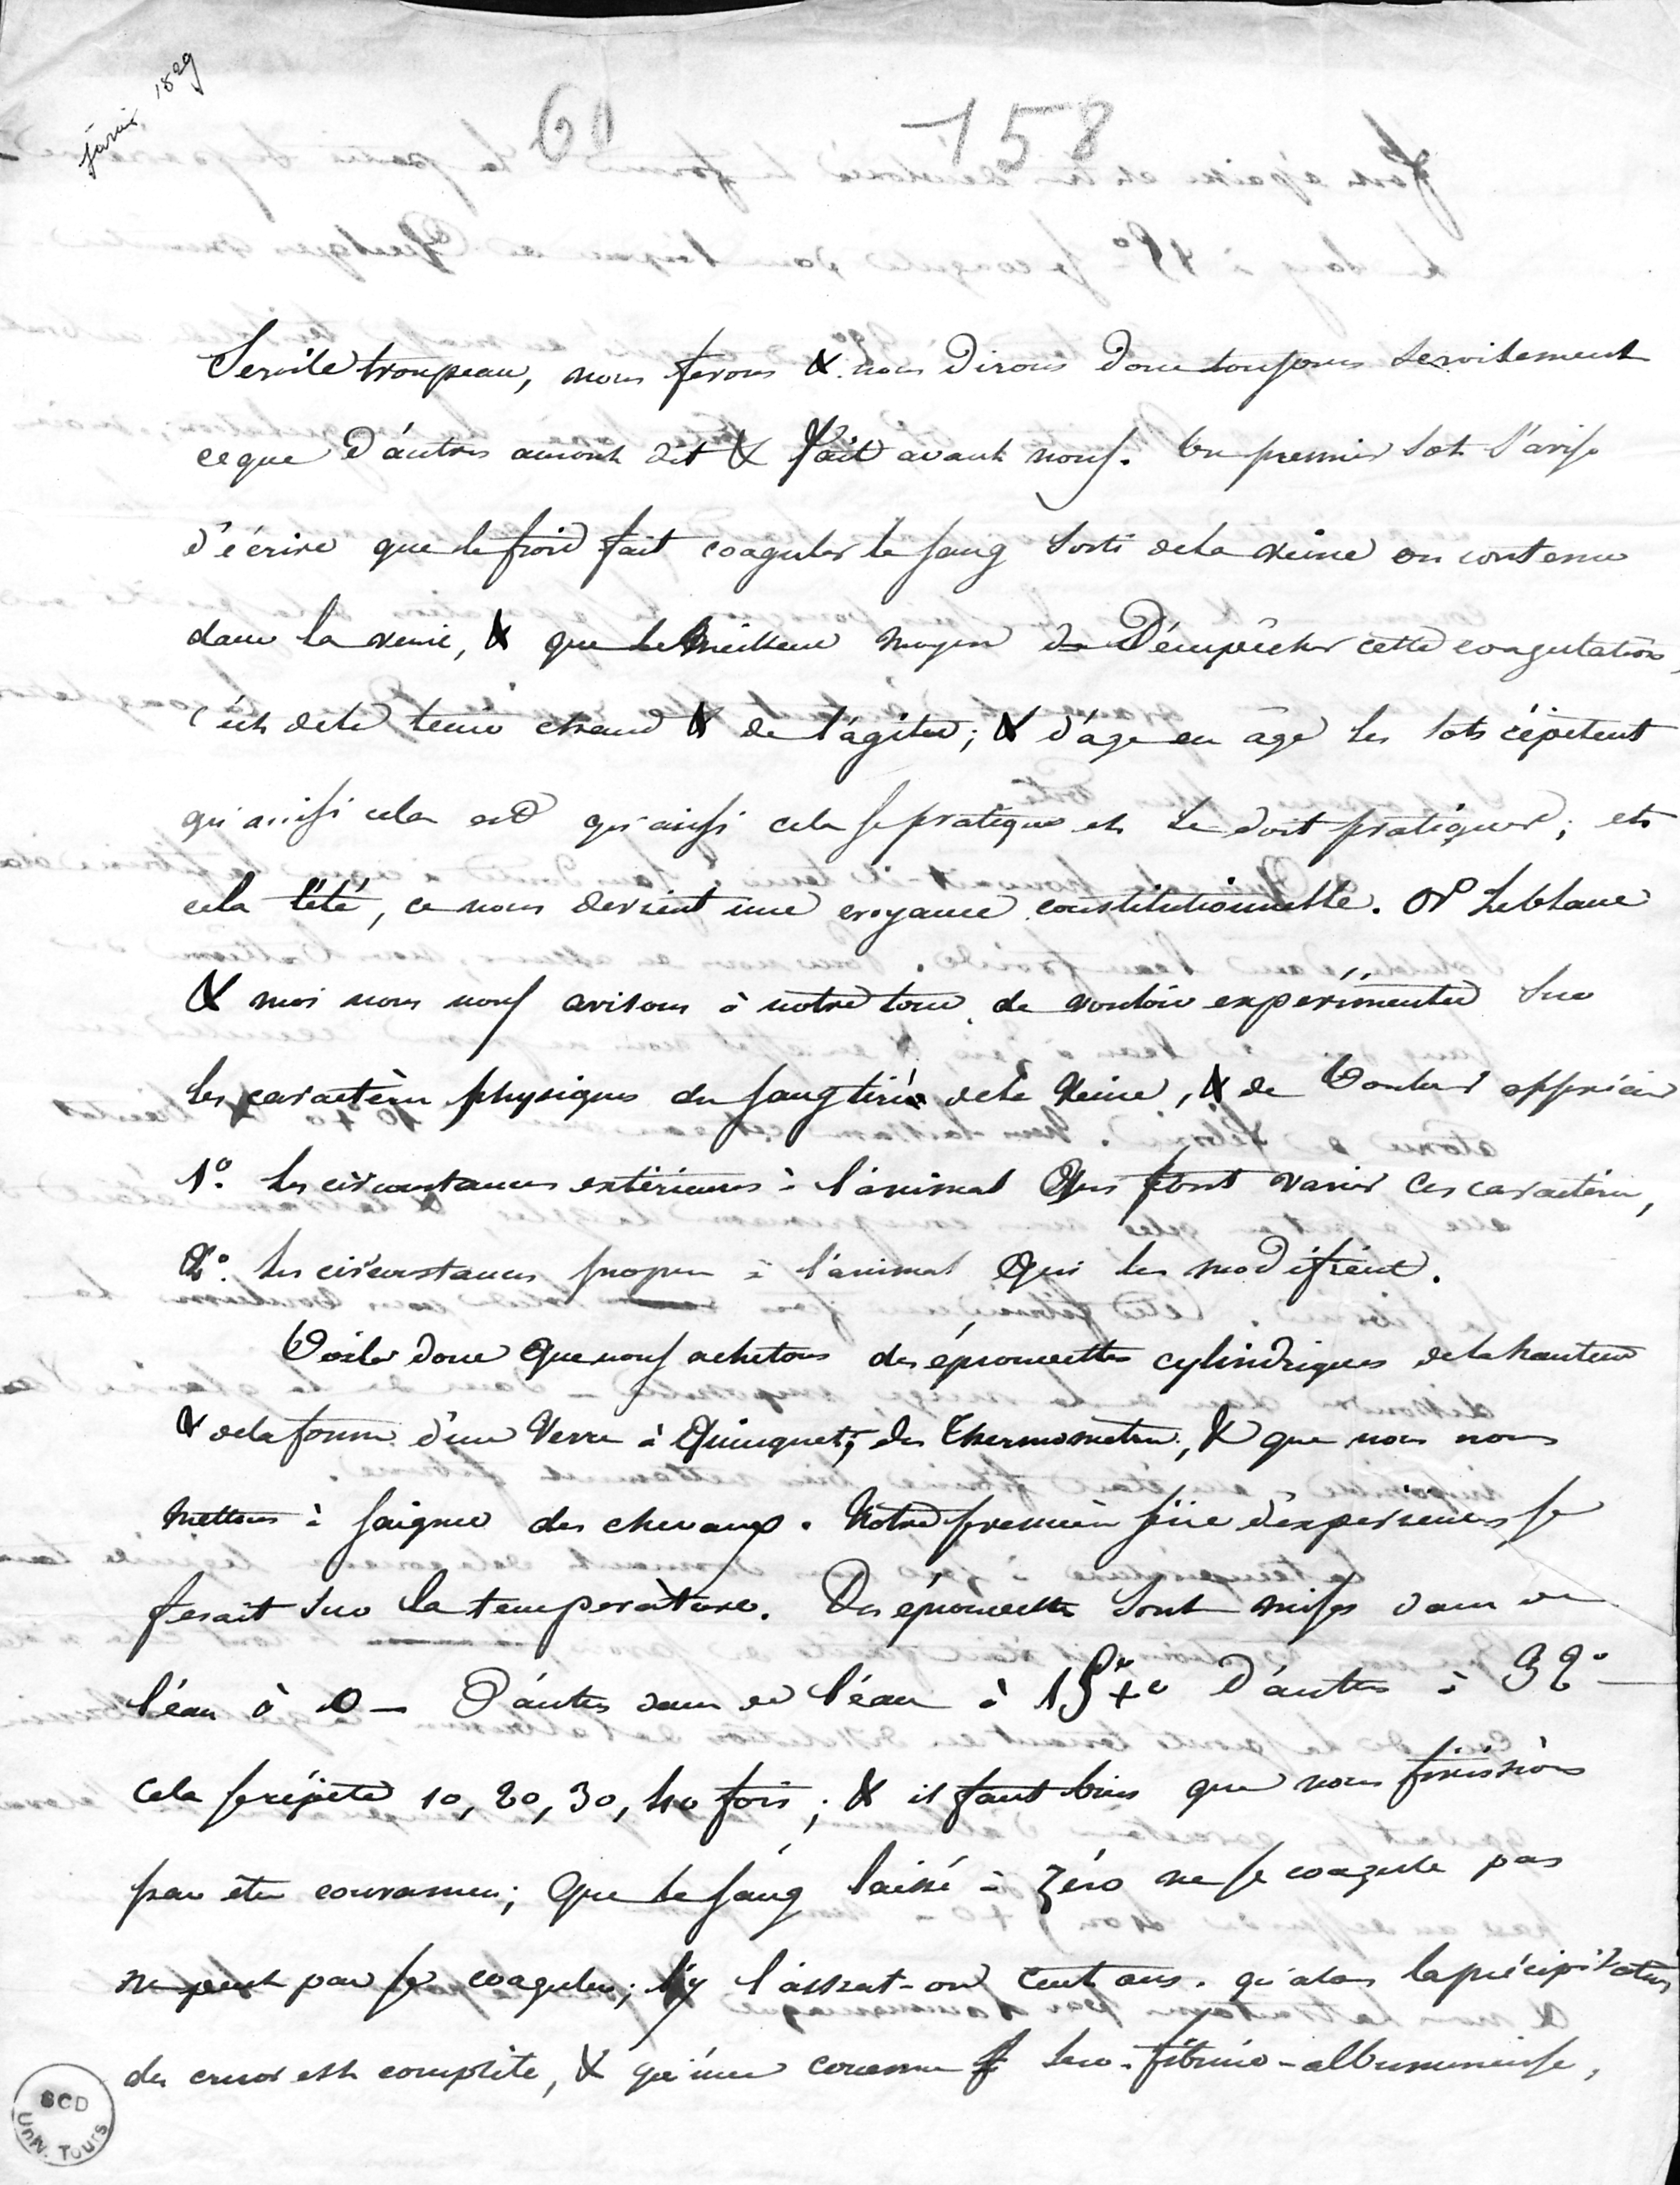 janvier 1829
60 158
Servile troupeau, nous ferons & nous dirons donc toujours servilement
ce que d'autres auront dit & fait avant nous. Un premier sot s'avise
d'écrire que le froid fait coaguler le sang sorti de la veine ou contenu
dans la veine, & que le meilleur moyen d'empêcher cette coagulation,
c'est de le tenir chaud & de l'agiter; & d'age en age les sots répetent
qu'ainsi cela est qu'ainsi cela se pratique et se doit pratiquer; et
cela été, ce nous devient une croyance constitutionnelle. Mr Leblanc
& moi nous nous avisons à notre tour de vouloir expérimenter sur
les caractères physiques du sang tiré de la veine, & de vouloir apprécier
1° les circonstances extérieures à l'animal qui font varier ces caractères,
2° les circonstances propres à l'animal qui les modifient.
Voila donc que nous achetons des éprouvettes cylindriques de la hauteur
& de la forme d'un verre à quinquet, des thermomètres, & que nous nous
mettons à saigner des chevaux. Notre première série d'expériences se
ferait sur la température. Des éprouvettes sont mises dans de
l'eau à 0 – d'autres dans de l'eau à 15°+ d'autres à 32° –
cela se répète 10, 20, 30, 40 fois; & il faut bien que nous finissions
par être convaincus; que le sang laissé à zéro ne se coagule pas
ne peut pas se coaguler; l'y laissat-on cent ans. qu'alors la précipitation
du cruor est complète, & qu'une couenne sero-fibrino-albumineuse,
BCD
Univ. Tours